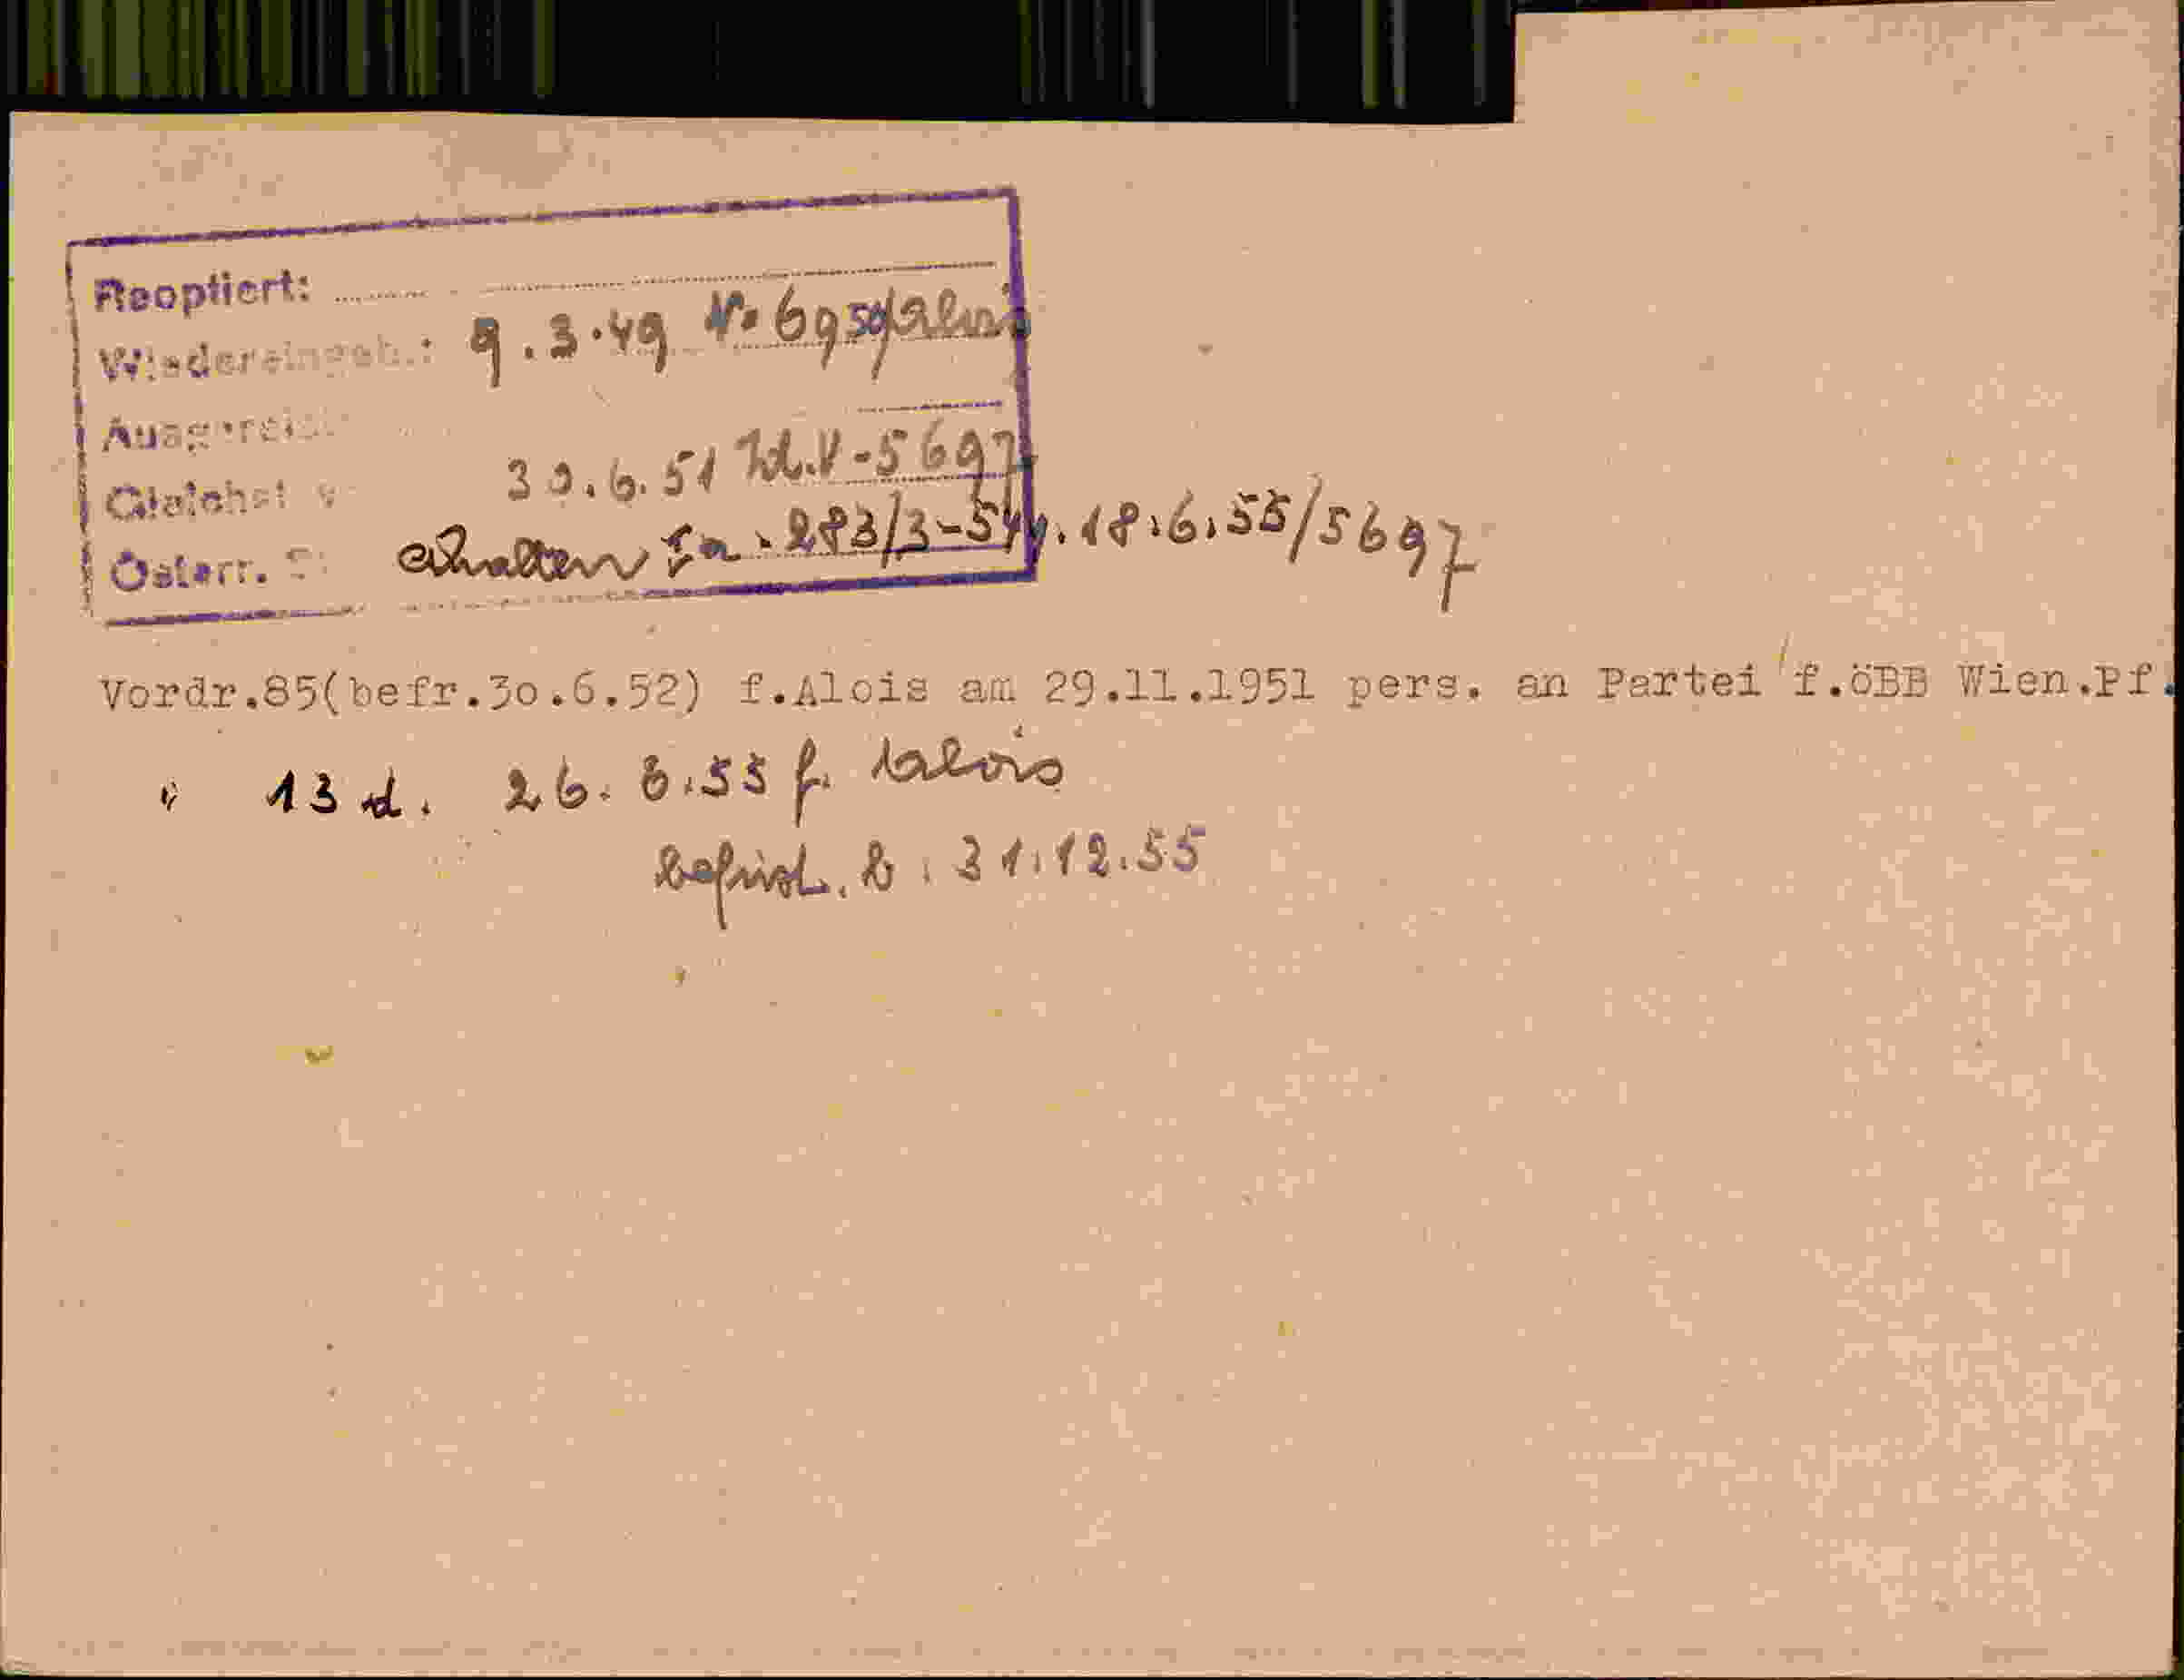 Reoptiert:
Wiedereingeb.: 9.3.49 V-6959/Alois
Ausgereist
Gleichst 30.6.51 V-5697
Österr. erhalten Ia-283/3-54 v. 18.6.55/5697
Vordr.85(befr.30.6.52) f.Alois am 29.11.1951 pers. an Partei f.öBB Wien.Pf.
" 13 d. 26.8.55 f. Alois
befrist. b. 31.12.55